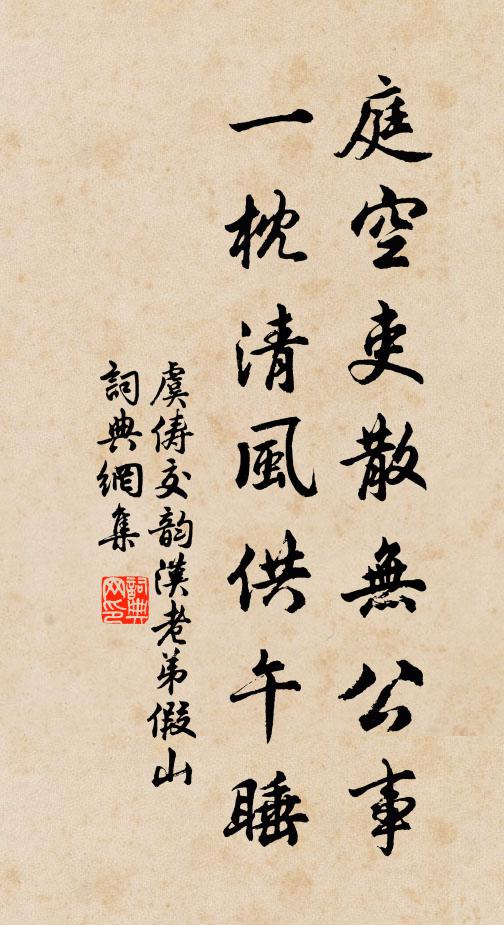 庭空吏散無公事
一枕清風供午睡
虞儔交韵漢老弟假山
詞典網集
詞典网印